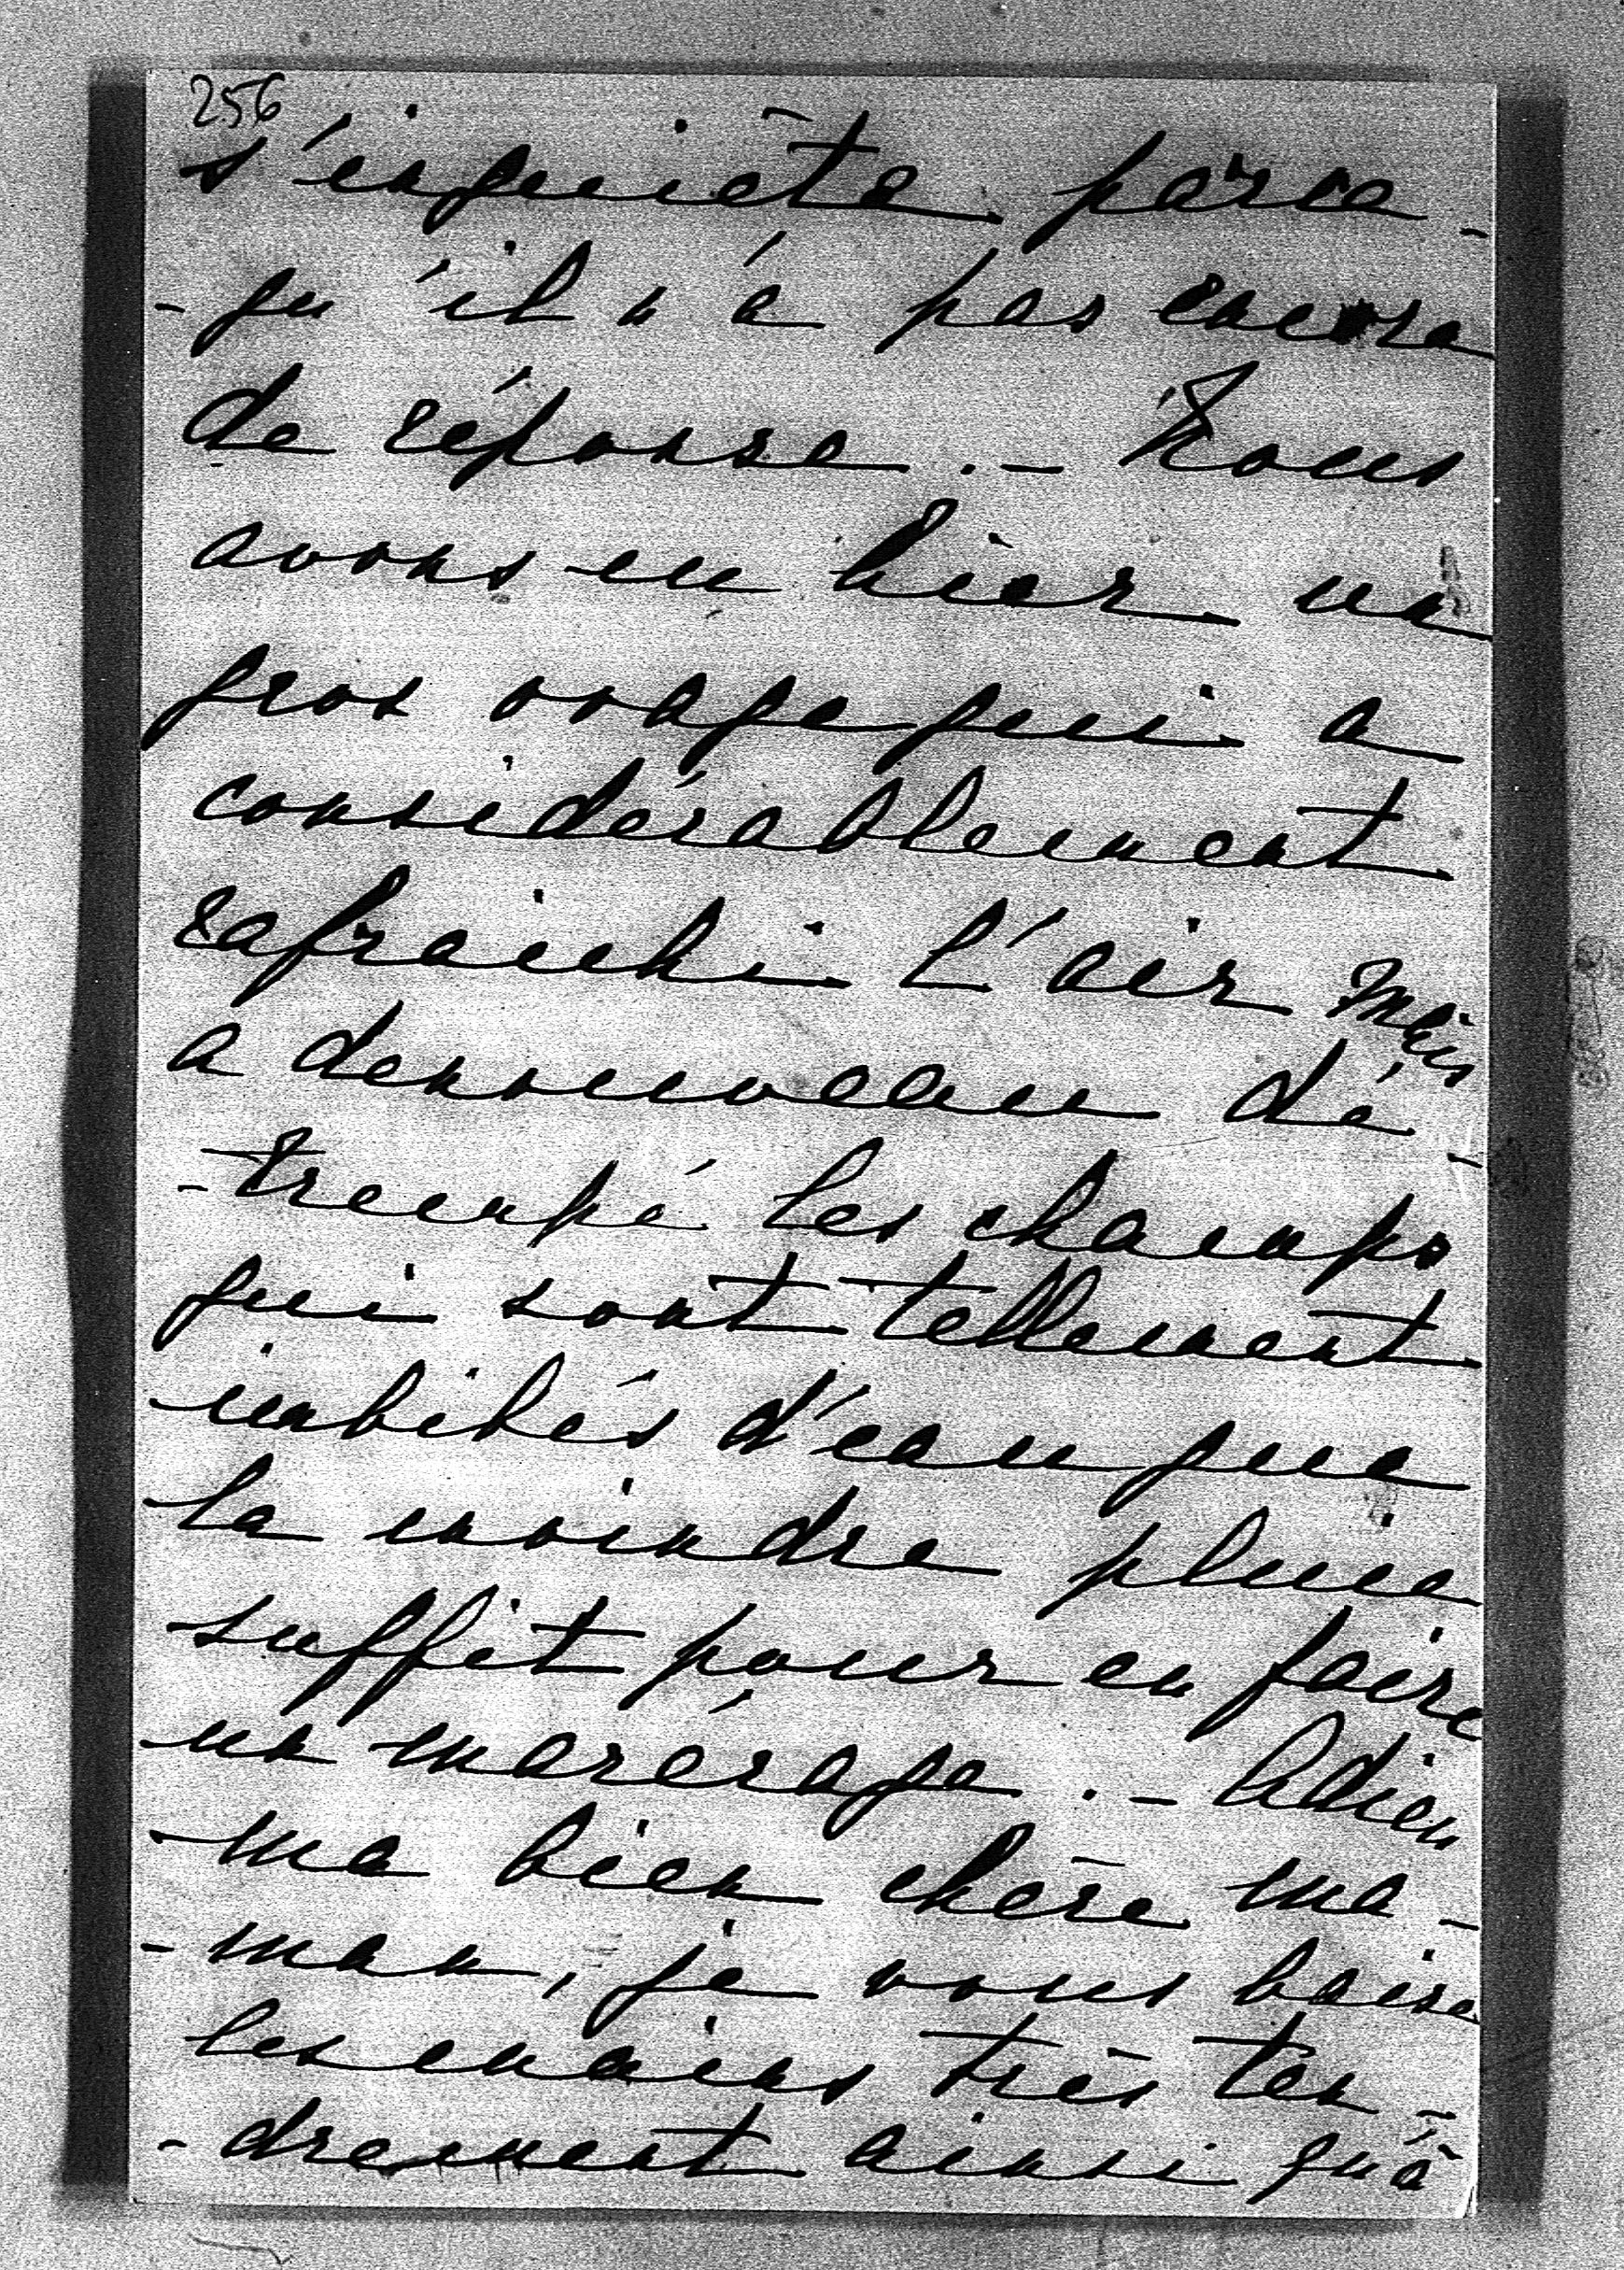 256
s'inquiète parce-
-qu'il n'a pas encore
de réponse. - Nous
avons eu hier un
gros orage qui a
considérablement
rafraichi l'air mais
a denouveau dé-
-trempé les champs
qui sont tellement
imbibés d'eau que
la moindre pluie
suffit pour en faire
un marérage. - Adieu
ma bien chère ma-
-man, je vous baise
les mains très ten-
-drement ainsi qu'à